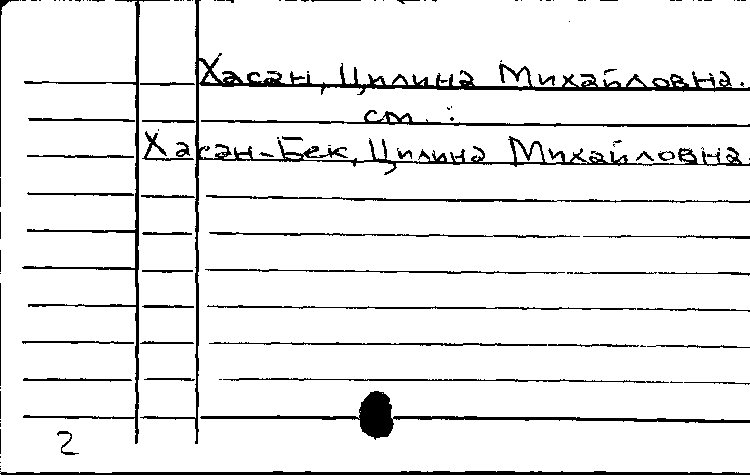 Хасан, Цилина Михайловна.
см.:
Хасан-Бек, Цилина Михайловна.
2